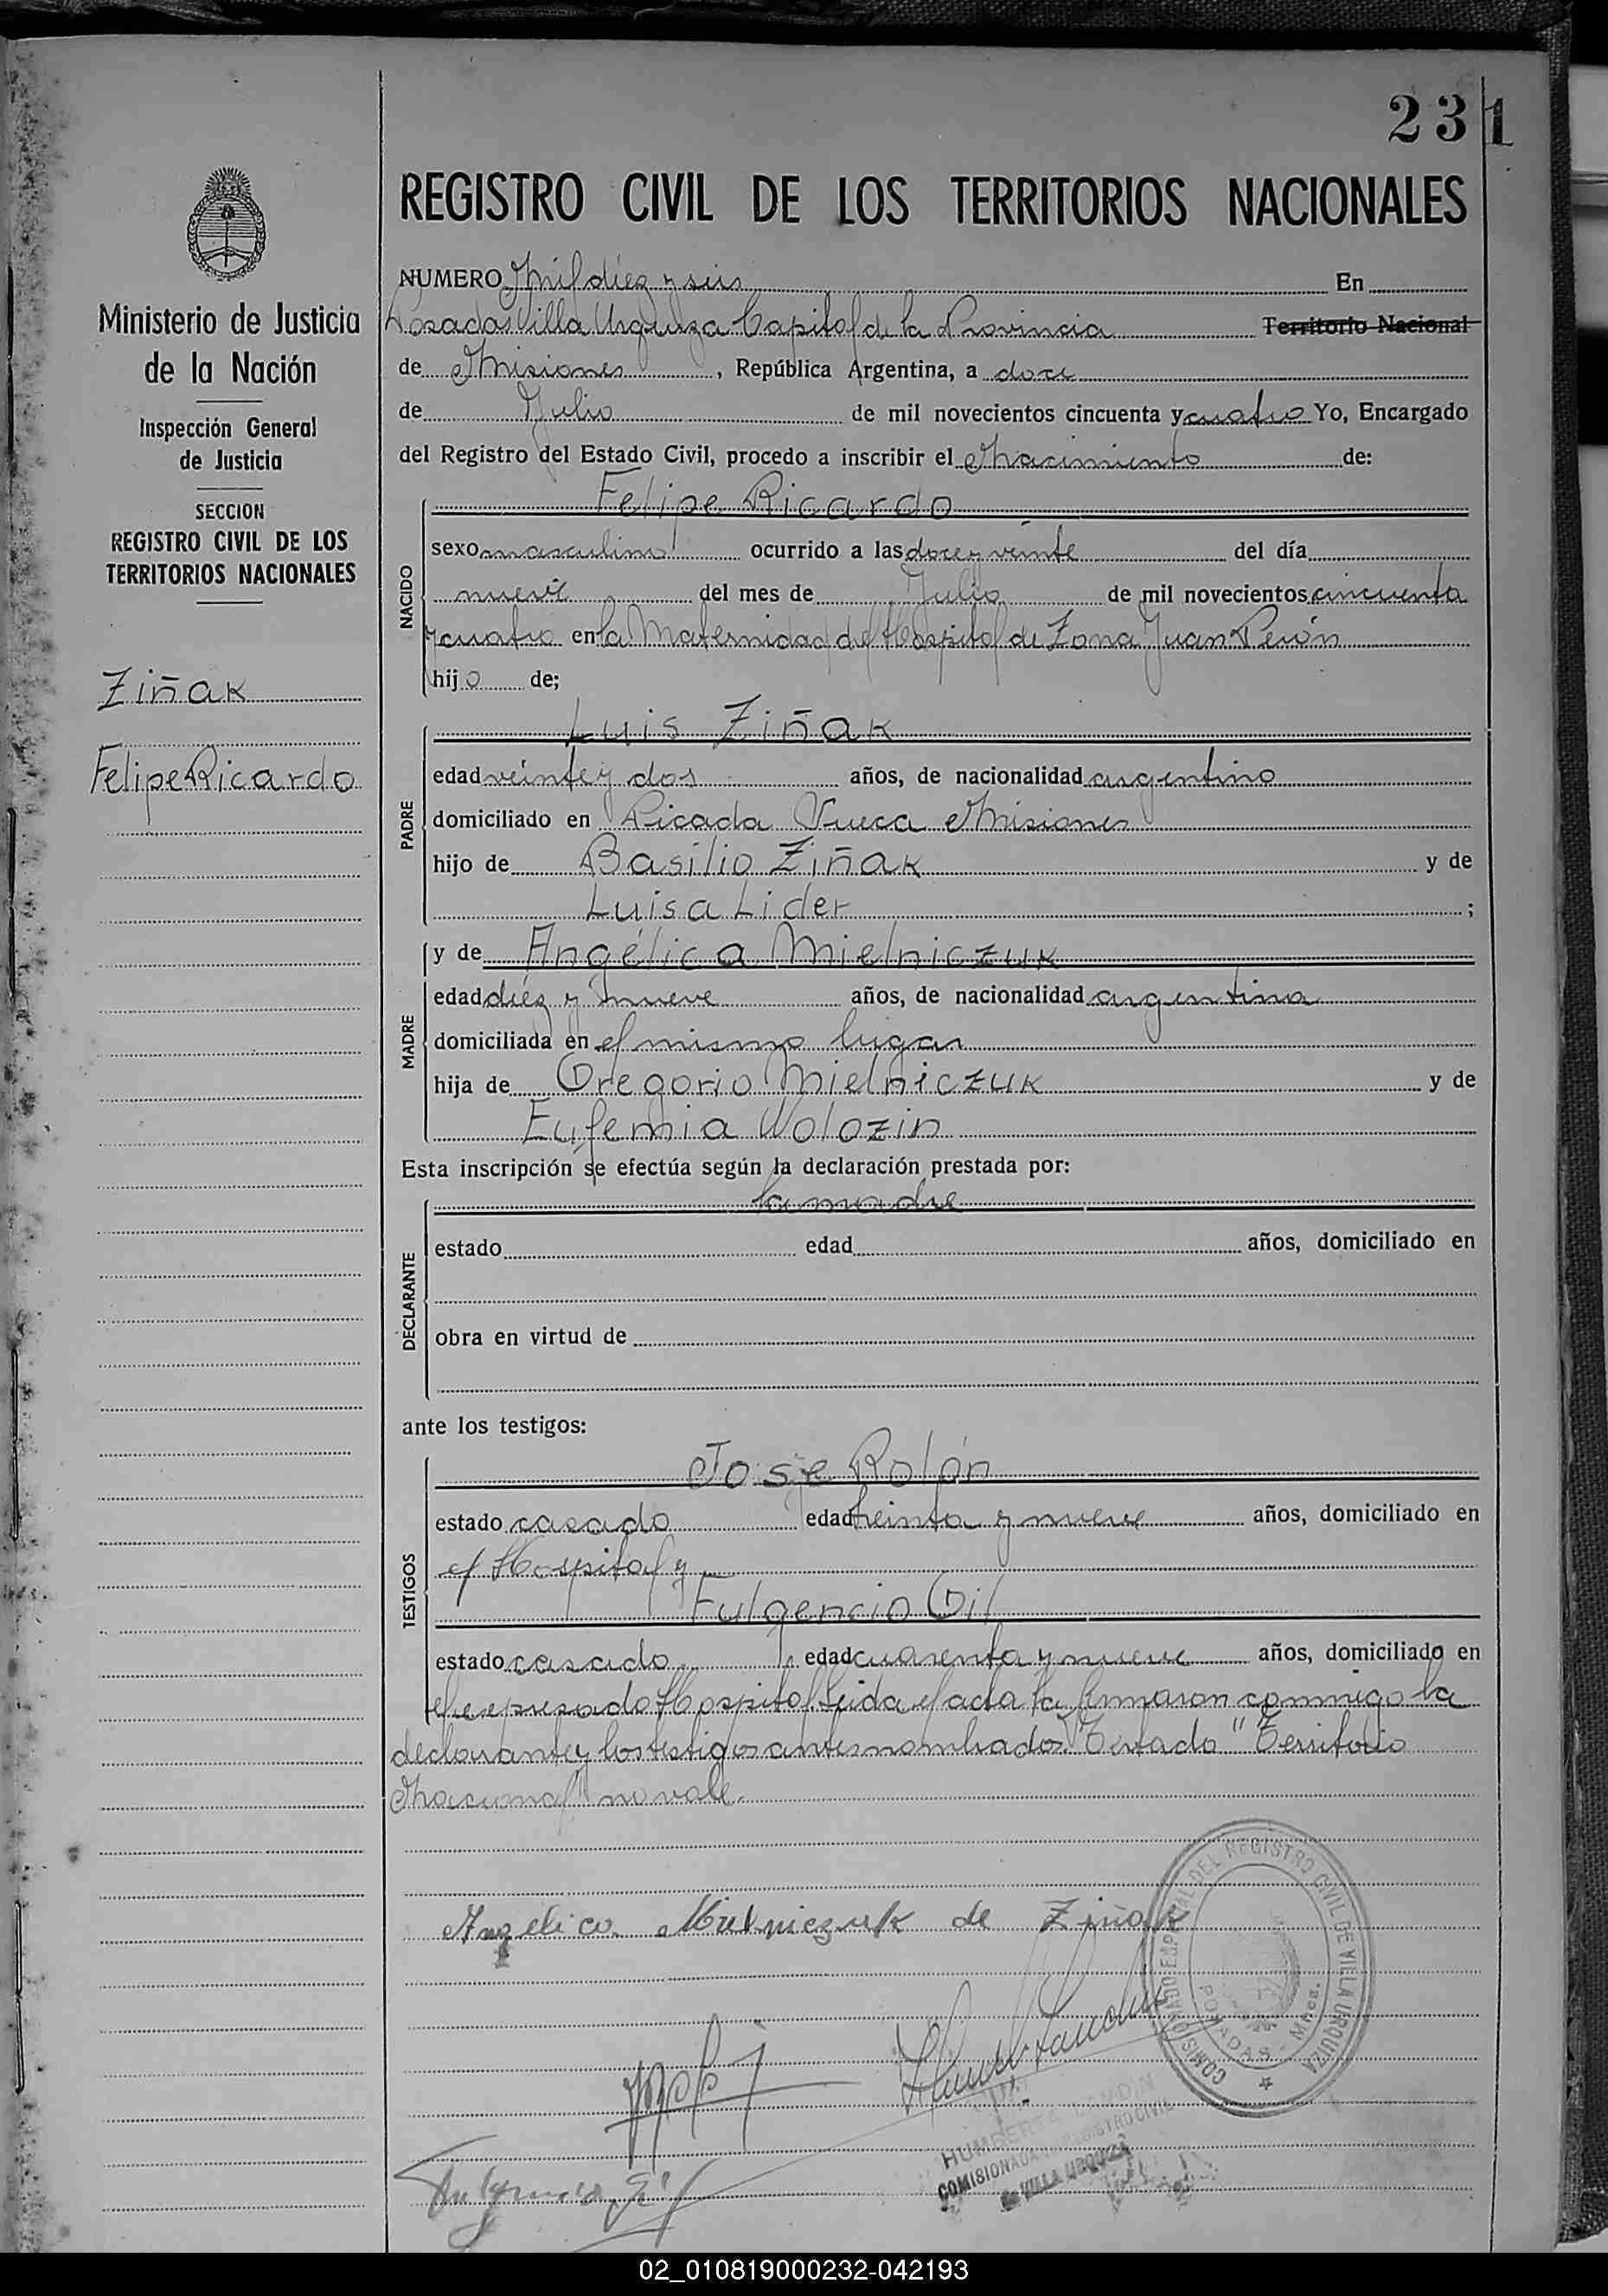 231
REGISTRO CIVIL DE LOS TERRITORIOS NACIONALES
Ministerio de Justicia
de la Nación
Inspección General
de Justicia
SECCION
REGISTRO CIVIL DE LOS
TERRITORIOS NACIONALES
Ziñak
Felipe Ricardo
NUMERO Mil diez y seis En
Posadas Villa Urquiza Capital de la Provincia Territorio Nacional
de Misiones, República Argentina, a doce
de Julio de mil novecientos cincuenta y cuatro Yo, Encargado
del Registro del Estado Civil, procedo a inscribir el Nacimiento de:
NACIDO
Felipe Ricardo
sexo masculino ocurrido a las doce y veinte del día
nueve del mes de Julio de mil novecientos cincuenta
y cuatro en la Maternidad del Hospital de Zona Juan Perón
hijo de;
PADRE
Luis Ziñak
edad veinte y dos años, de nacionalidad argentino
domiciliado en Picada Misiones
hijo de Basilio Ziñak y de
Luisa Lider ;
MADRE
y de Angélica Mielniczuk
edad diez y nueve años, de nacionalidad argentina
domiciliada en el mismo lugar
hija de Gregorio Mielniczuk y de
Eufemia Wolozin
Esta inscripción se efectúa según la declaración prestada por:
DECLARANTE
la madre
estado edad años, domiciliado en
obra en virtud de
ante los testigos:
TESTIGOS
José Rolón
estado casado edad treinta y nueve años, domiciliado en
el Hospital y
Fulgencio Gil
estado casado edad cuarenta y nueve años, domiciliado en
el expresado Hospital. Leida el acta la firmaron conmigo la
declarante y los testigos antes nombrados "Testado "Territorio
Nacional" no vale.
Angelica Mielniczuk de Ziñak
Fulgencio Gil
COMISIONADO ESPECIAL DEL REGISTRO CIVIL DE VILLA URQUIZA
POSADAS - Mnes.
COMISIONADA REGISTRO CIVIL
de VILLA URQUIZA
02_010819000232-042193